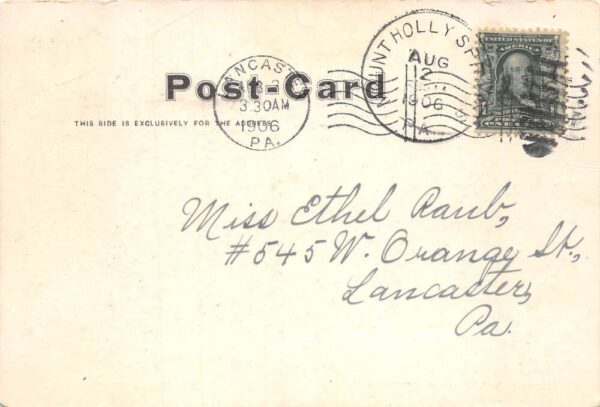 Post-Card
THIS SIDE IS EXCLUSIVELY FOR THE ADDRESS
LANCASTER
3.30AM
1906
PA.
MOUNT HOLLY SPR
AUG
12
1906
PA.
UNITED STATES OF
AMERICA
Miss Ethel Raub,
#545 W. Orange St.,
Lancaster,
Pa.